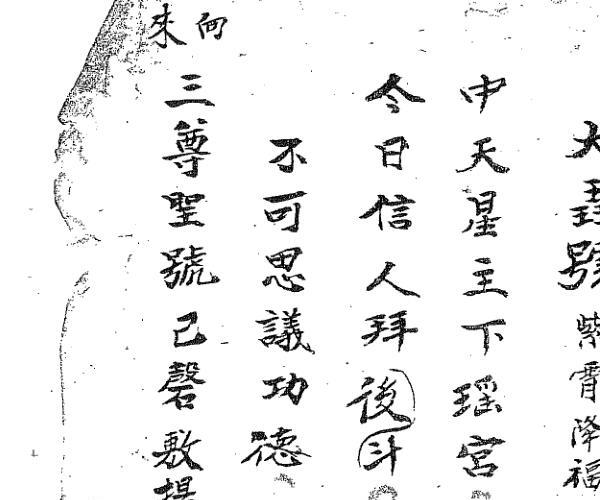 大聖號紫霄降福
中天星主下瑤宮
今日信人拜後斗
不可思議功德
向來三尊聖號已磬敷揚